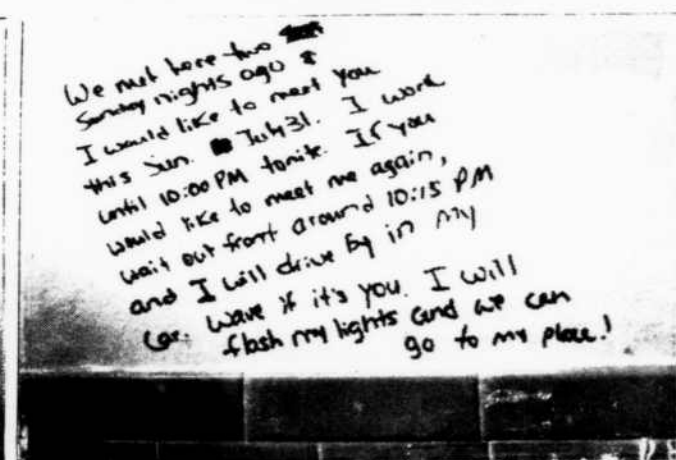 We met here two
Sunday nights ago &
I would like to meet you
this Sun. July 31. I work
until 10:00 PM tonite. If you
would like to meet me again,
wait out front around 10:15 PM
and I will drive by in my
car. Wave if it's you. I will
flash my lights and we can
go to my place!